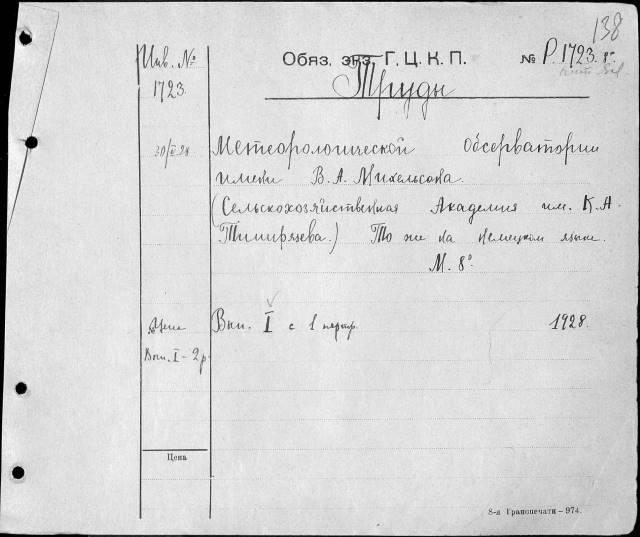 138
Инв. № Обяз. экз. Г. Ц. К. П. № Р. 1723. 8°.
1723.
Труды
30/ Метеорологической Обсерватории
имени В. А. Михельсона.
(Сельскохозяйственная Академия им. К. А.
Тимирязева.) То же на немецком языке.
М. 8°.
Цена Вып. I с 1 портр. 1928.
Вып. I - 2 р.
Цена
8-я Гранопечати — 974.